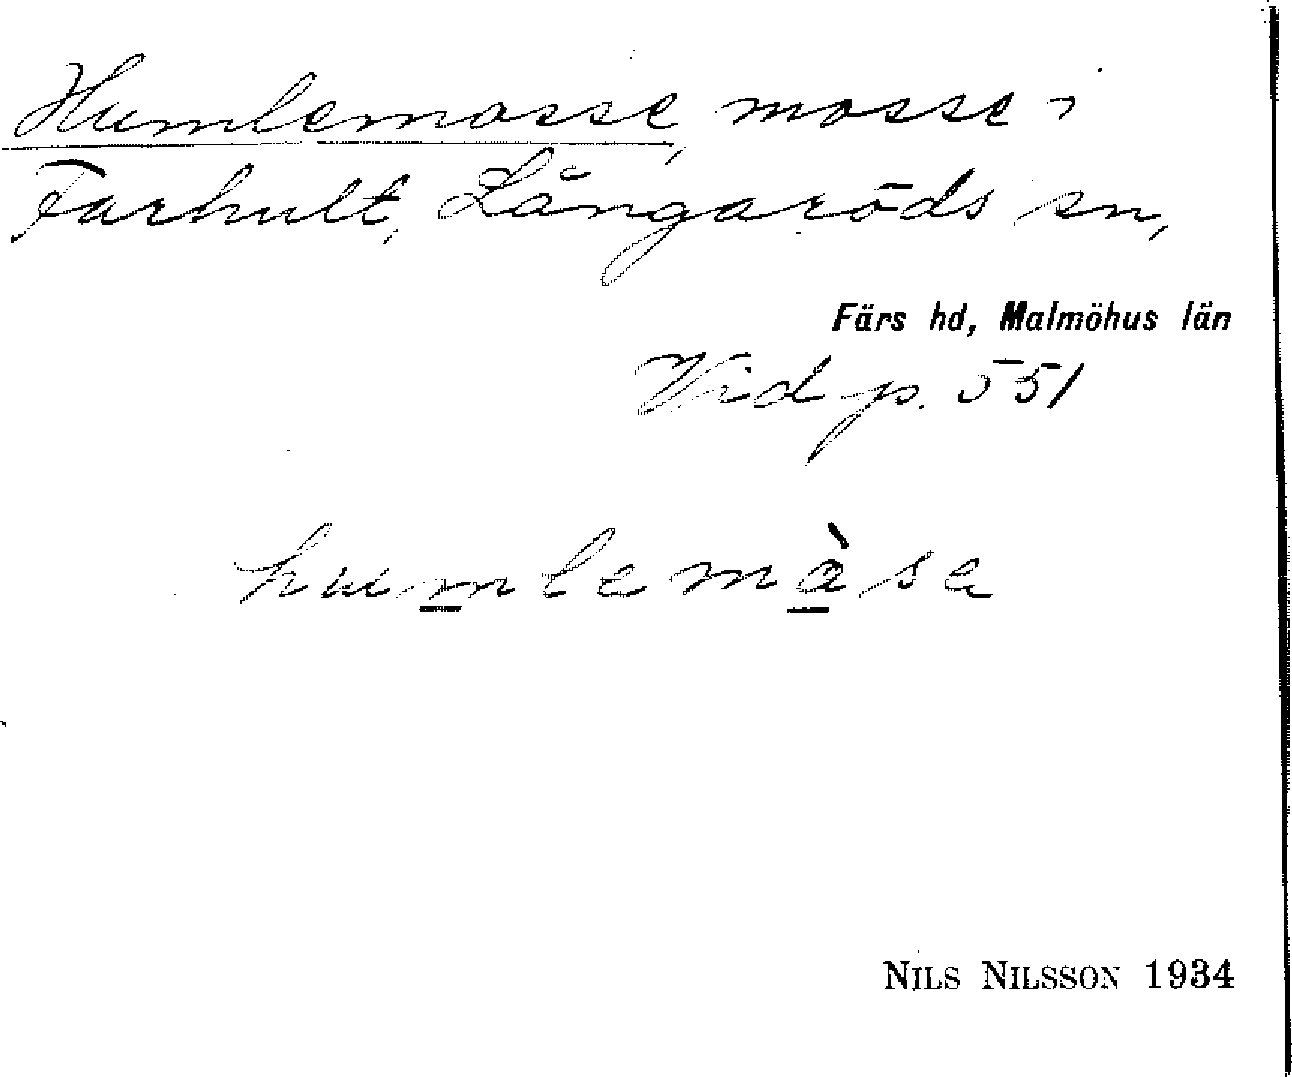 Humlemosse, mosse i
Farhult, Långaröds sn,
Färs hd, Malmöhus län
Vid p. 551
humlemàse
NILS NILSSON 1934